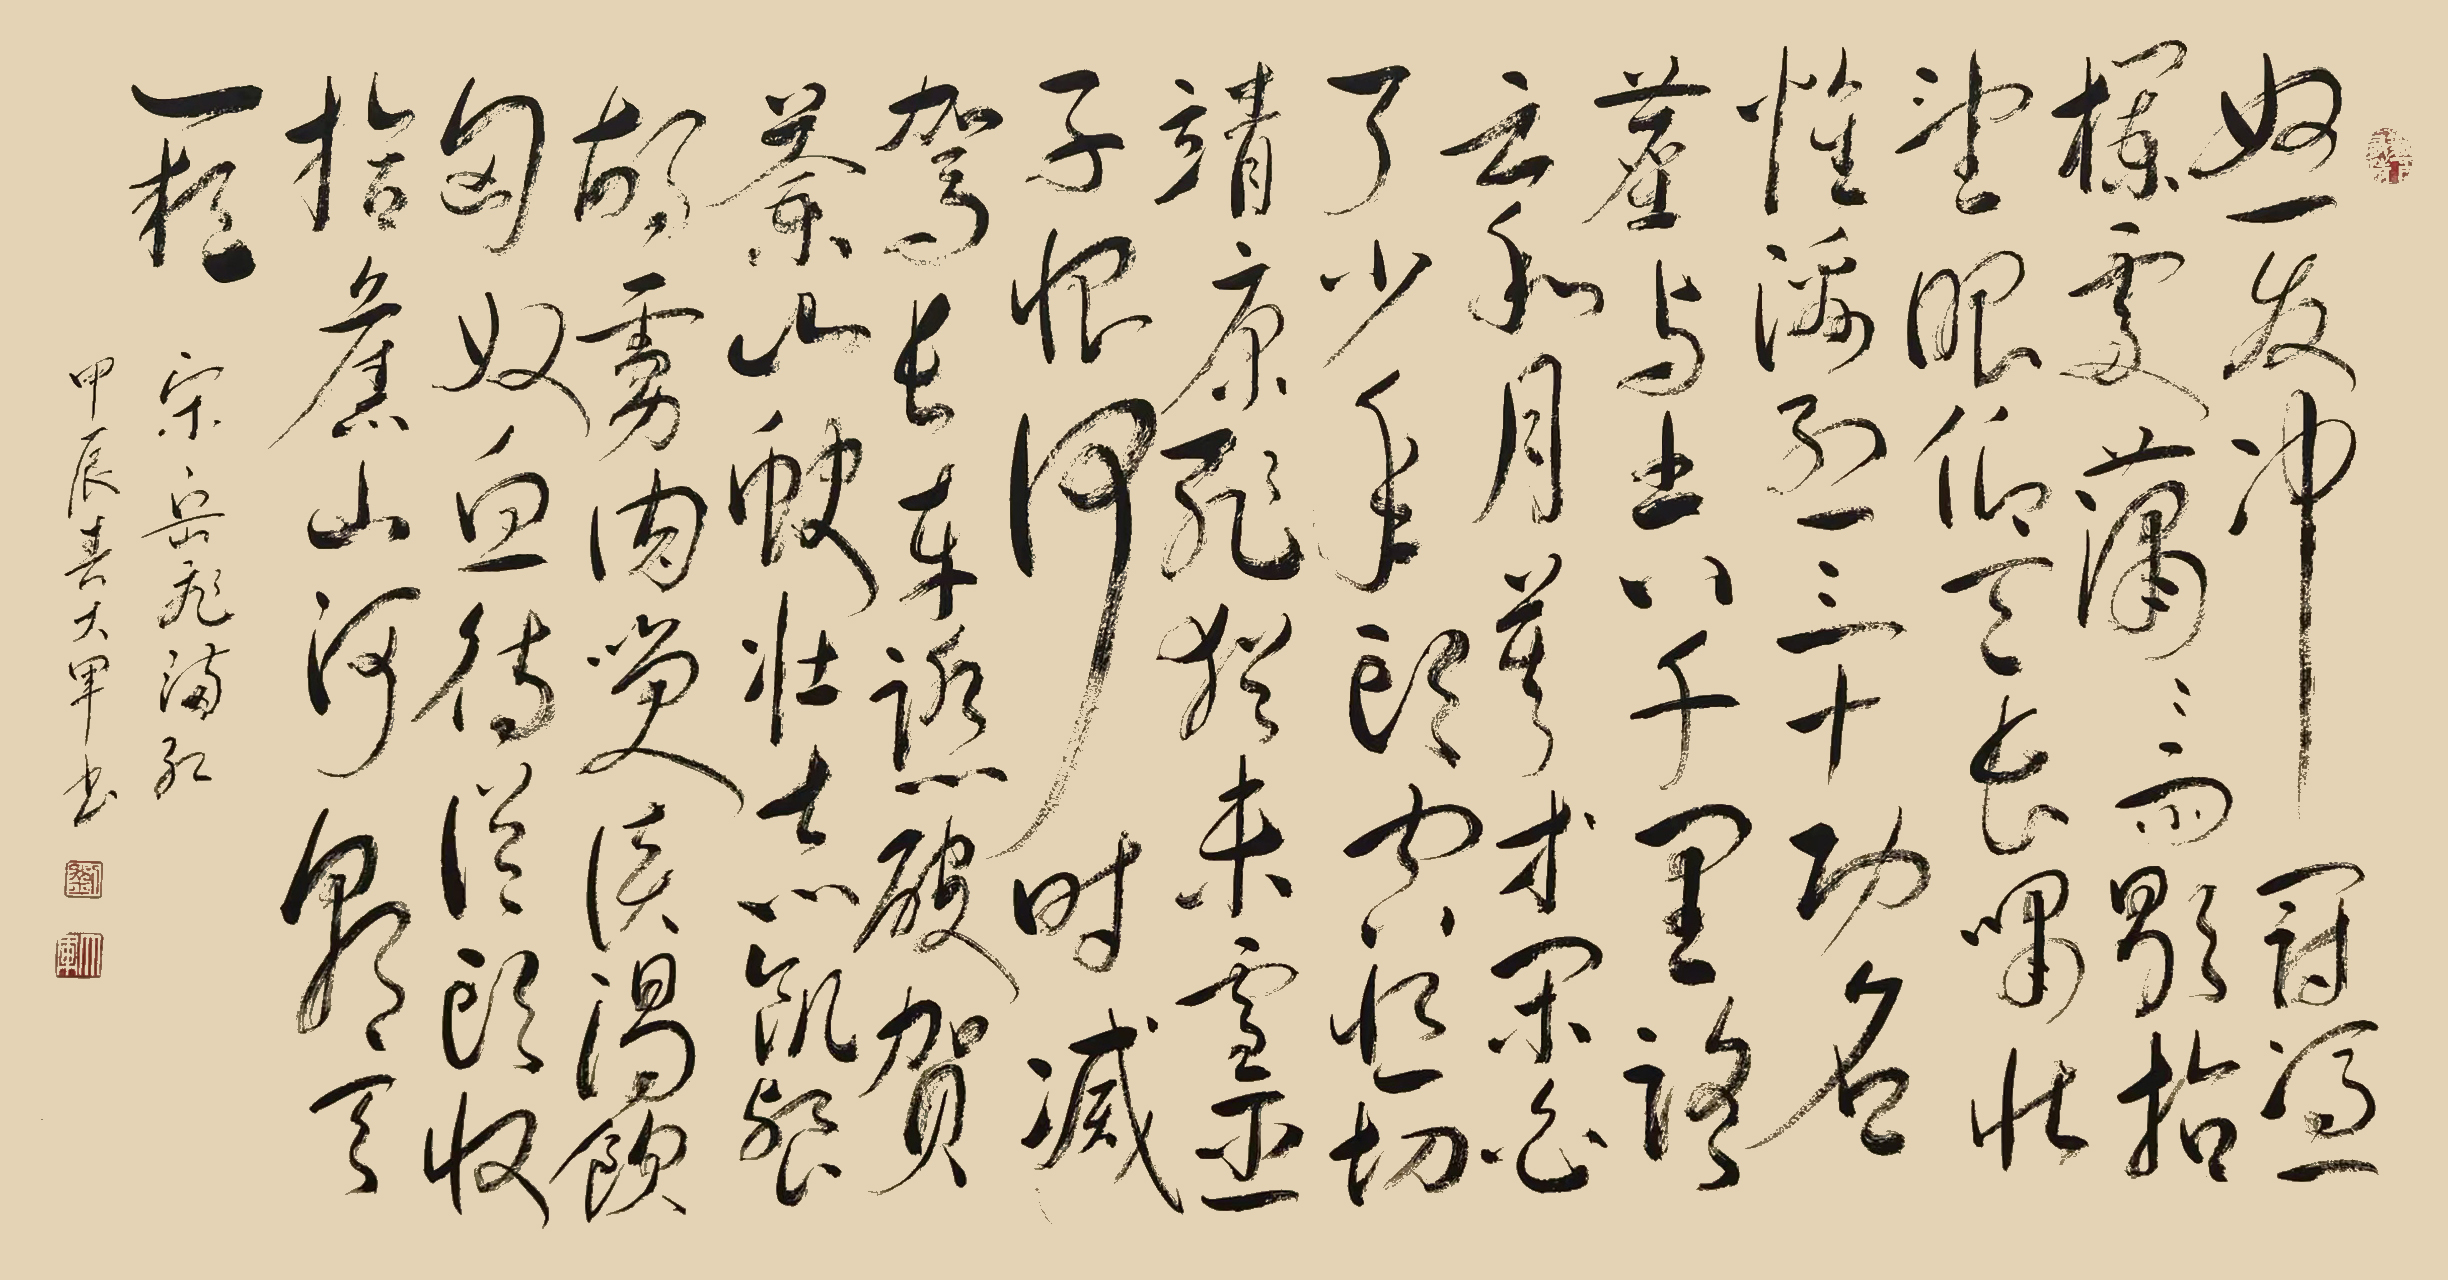 怒发冲冠凭
栏處潇〻雨歇抬
望眼仰天长啸壮
懷激烈三十功名
塵与土八千里路
云和月莫等闲白
了少年头空悲切
靖康耻犹未雪臣
子恨何时滅
驾长车踏破贺
蘭山缺壮志饥餐
胡虏肉笑谈渴饮
匈奴血待从头收
拾舊山河朝天
阙
宋岳飛满江红
甲辰春大军书